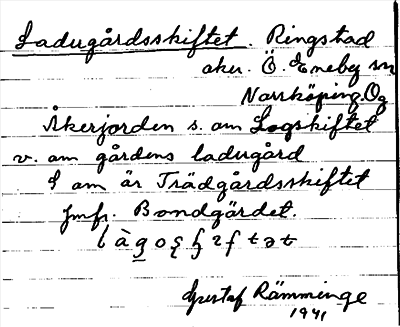 Ladugårdsskiftet. Ringstad
aker. Ö. Eneby sn
Norrköping. Ög
Åkerjorden s. om Logskiftet
v. om gårdens ladugård
S om är Trädgårdsskiftet
Jmfr. Bondgärdet.
Gustaf Rämminge
1941